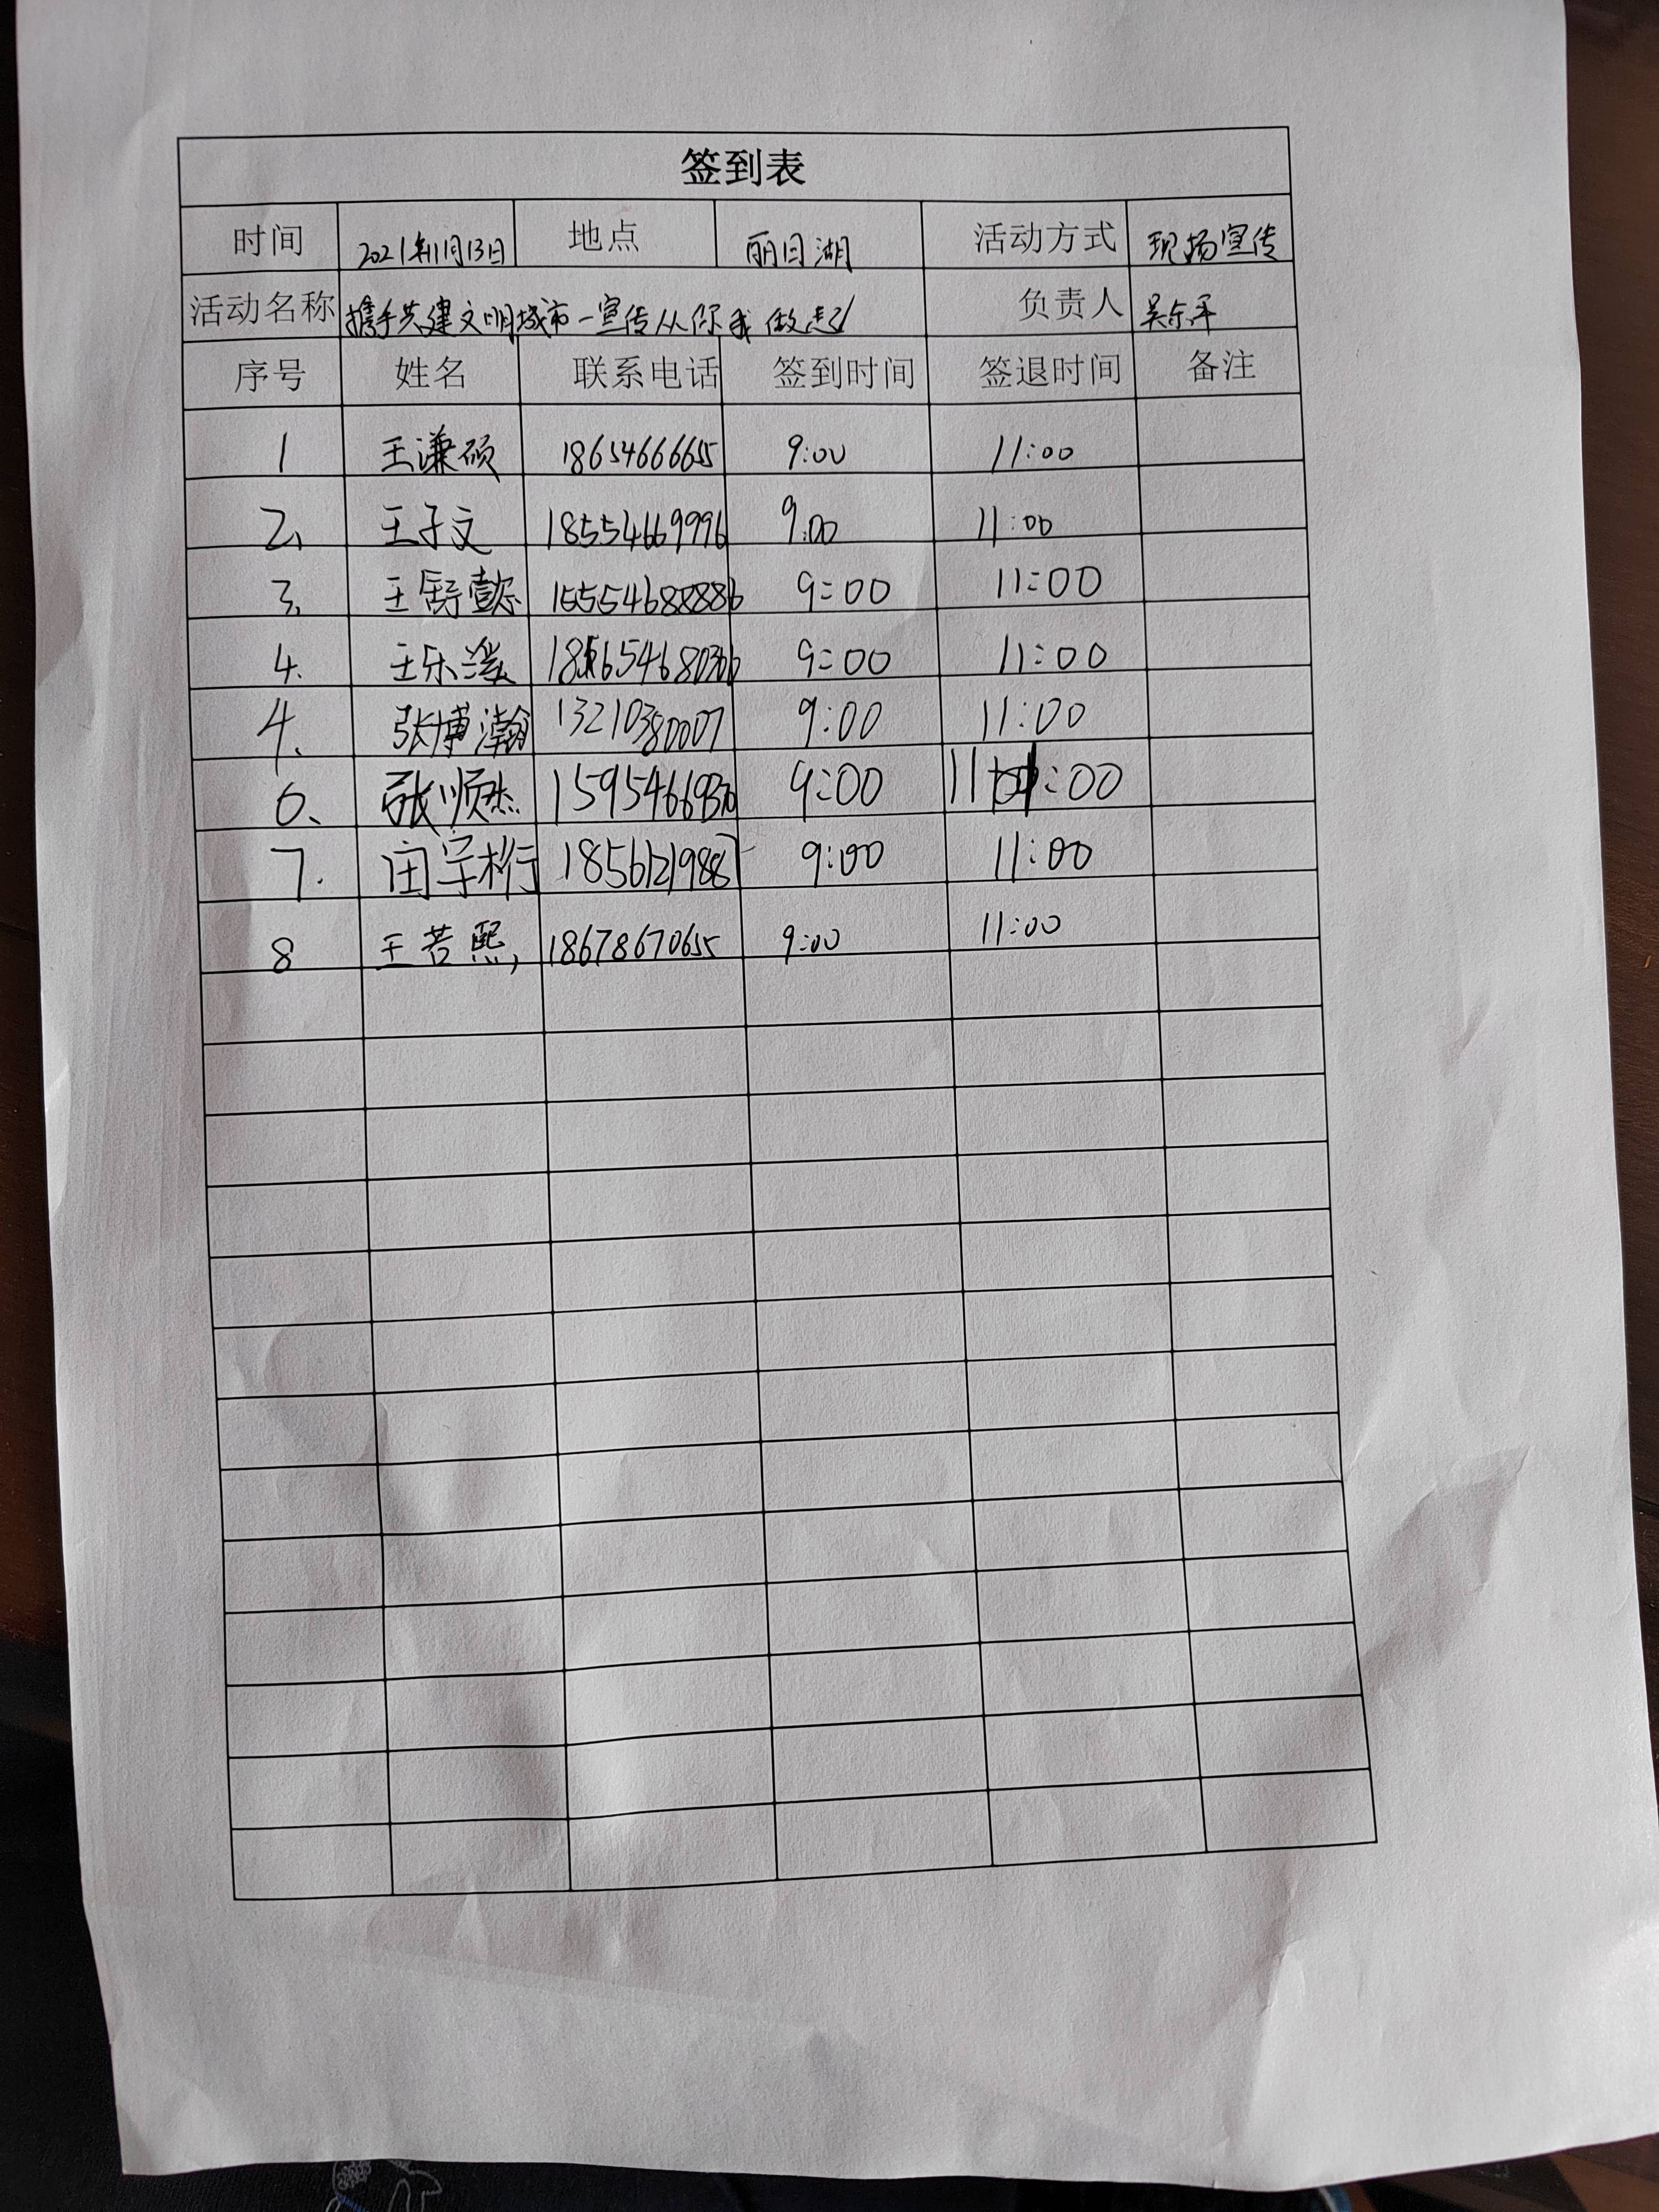 签到表
时间 2021年11月13日 地点 丽日湖 活动方式 现场宣传
活动名称 携手共建文明城市一宣传从你我做起 负责人 吴东平
序号 姓名 联系电话 签到时间 签退时间 备注
1 王谦硕 18654666655 9:00 11:00
2、 王子文 18554669996 9:00 11:00
3、 王舒懿 15554688886 9:00 11:00
4. 王乐溪 9:00 11:00
4、 张博瀚 13210380007 9:00 11:00
6、 张顺杰 15954669370 9:00 11:00
7. 闫宇桁 18561219887 9:00 11:00
8 王若熙, 18678670655 9:00 11:00